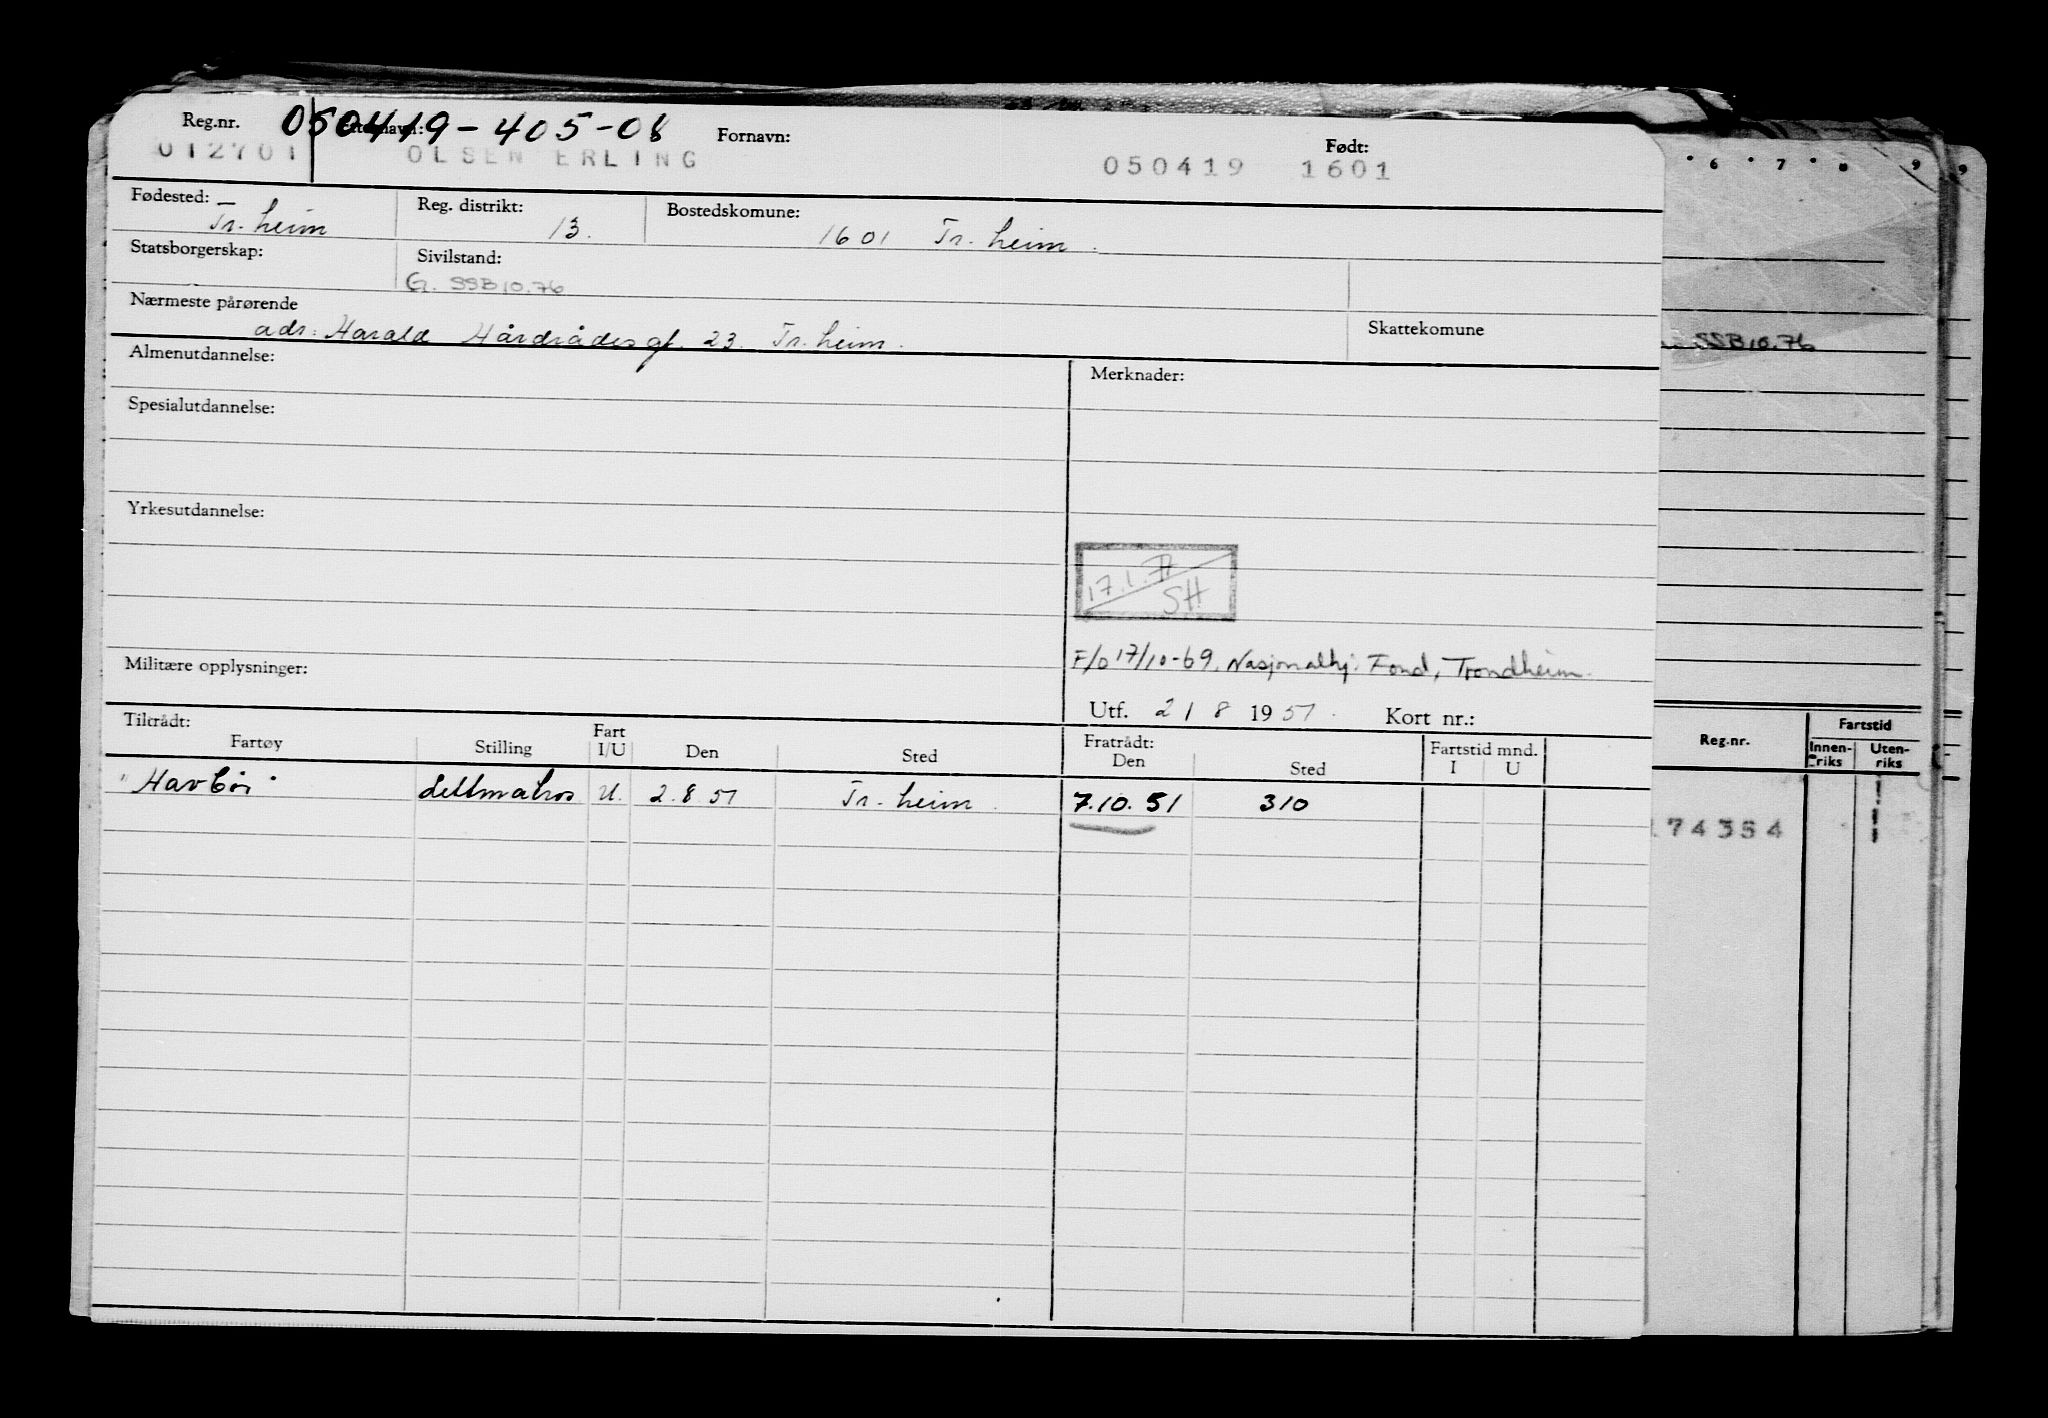 Reg.nr. 050419-405-08 Etternavn: Fornavn: Født:
012701 OLSEN ERLING 050419 1601
Fødested: Reg. distrikt: Bostedskomune:
Tr.heim 13. 1601 Tr.heim.
Statsborgerskap: Sivilstand:
G. SSB 10.76
Nærmeste pårørende
adr: Harald Hårdrådesgt. 23. Tr.heim. Skattekomune
Almenutdannelse: Merknader:
Spesialutdannelse:
Yrkesutdannelse:
17.1.77
SH
Militære opplysninger: F/o 17/10-69. Nasjonalhj. Fond, Trondheim.
Utf. 21 8 1951. Kort nr.:
Tiltrådt: Fart Fratrådt: Fartstid mnd.
Fartøy Stilling I/U Den Sted Den Sted I U
"Havbör" lettmatros U. 2.8 51 Tr.heim. 7.10.51 310
6 7 8 9 9
SSB 10.76
Reg.nr. Fartstid
Innenriks Utenriks
74354